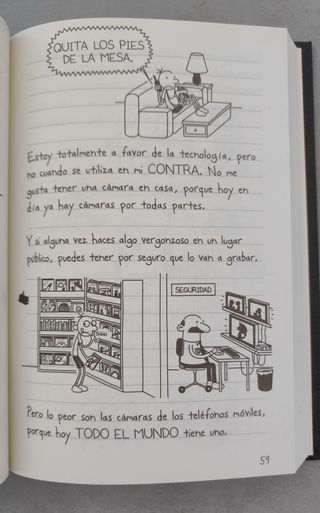 QUITA LOS PIES
DE LA MESA.
Estoy totalmente a favor de la tecnología, pero
no cuando se utiliza en mi CONTRA. No me
gusta tener una cámara en casa, porque hoy en
día ya hay cámaras por todas partes.
Y si alguna vez haces algo vergonzoso en un lugar
público, puedes tener por seguro que lo van a grabar.
SEGURIDAD
Pero lo peor son las cámaras de los teléfonos móviles,
porque hoy TODO EL MUNDO tiene uno.
59